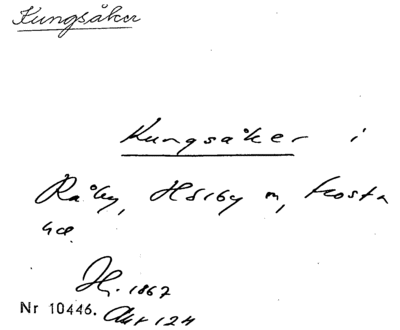 Kungsåker
Kungsåker i
Råby, Hörby m, Frosta
hd.
H. 1867
Nr 10446. Akt 124